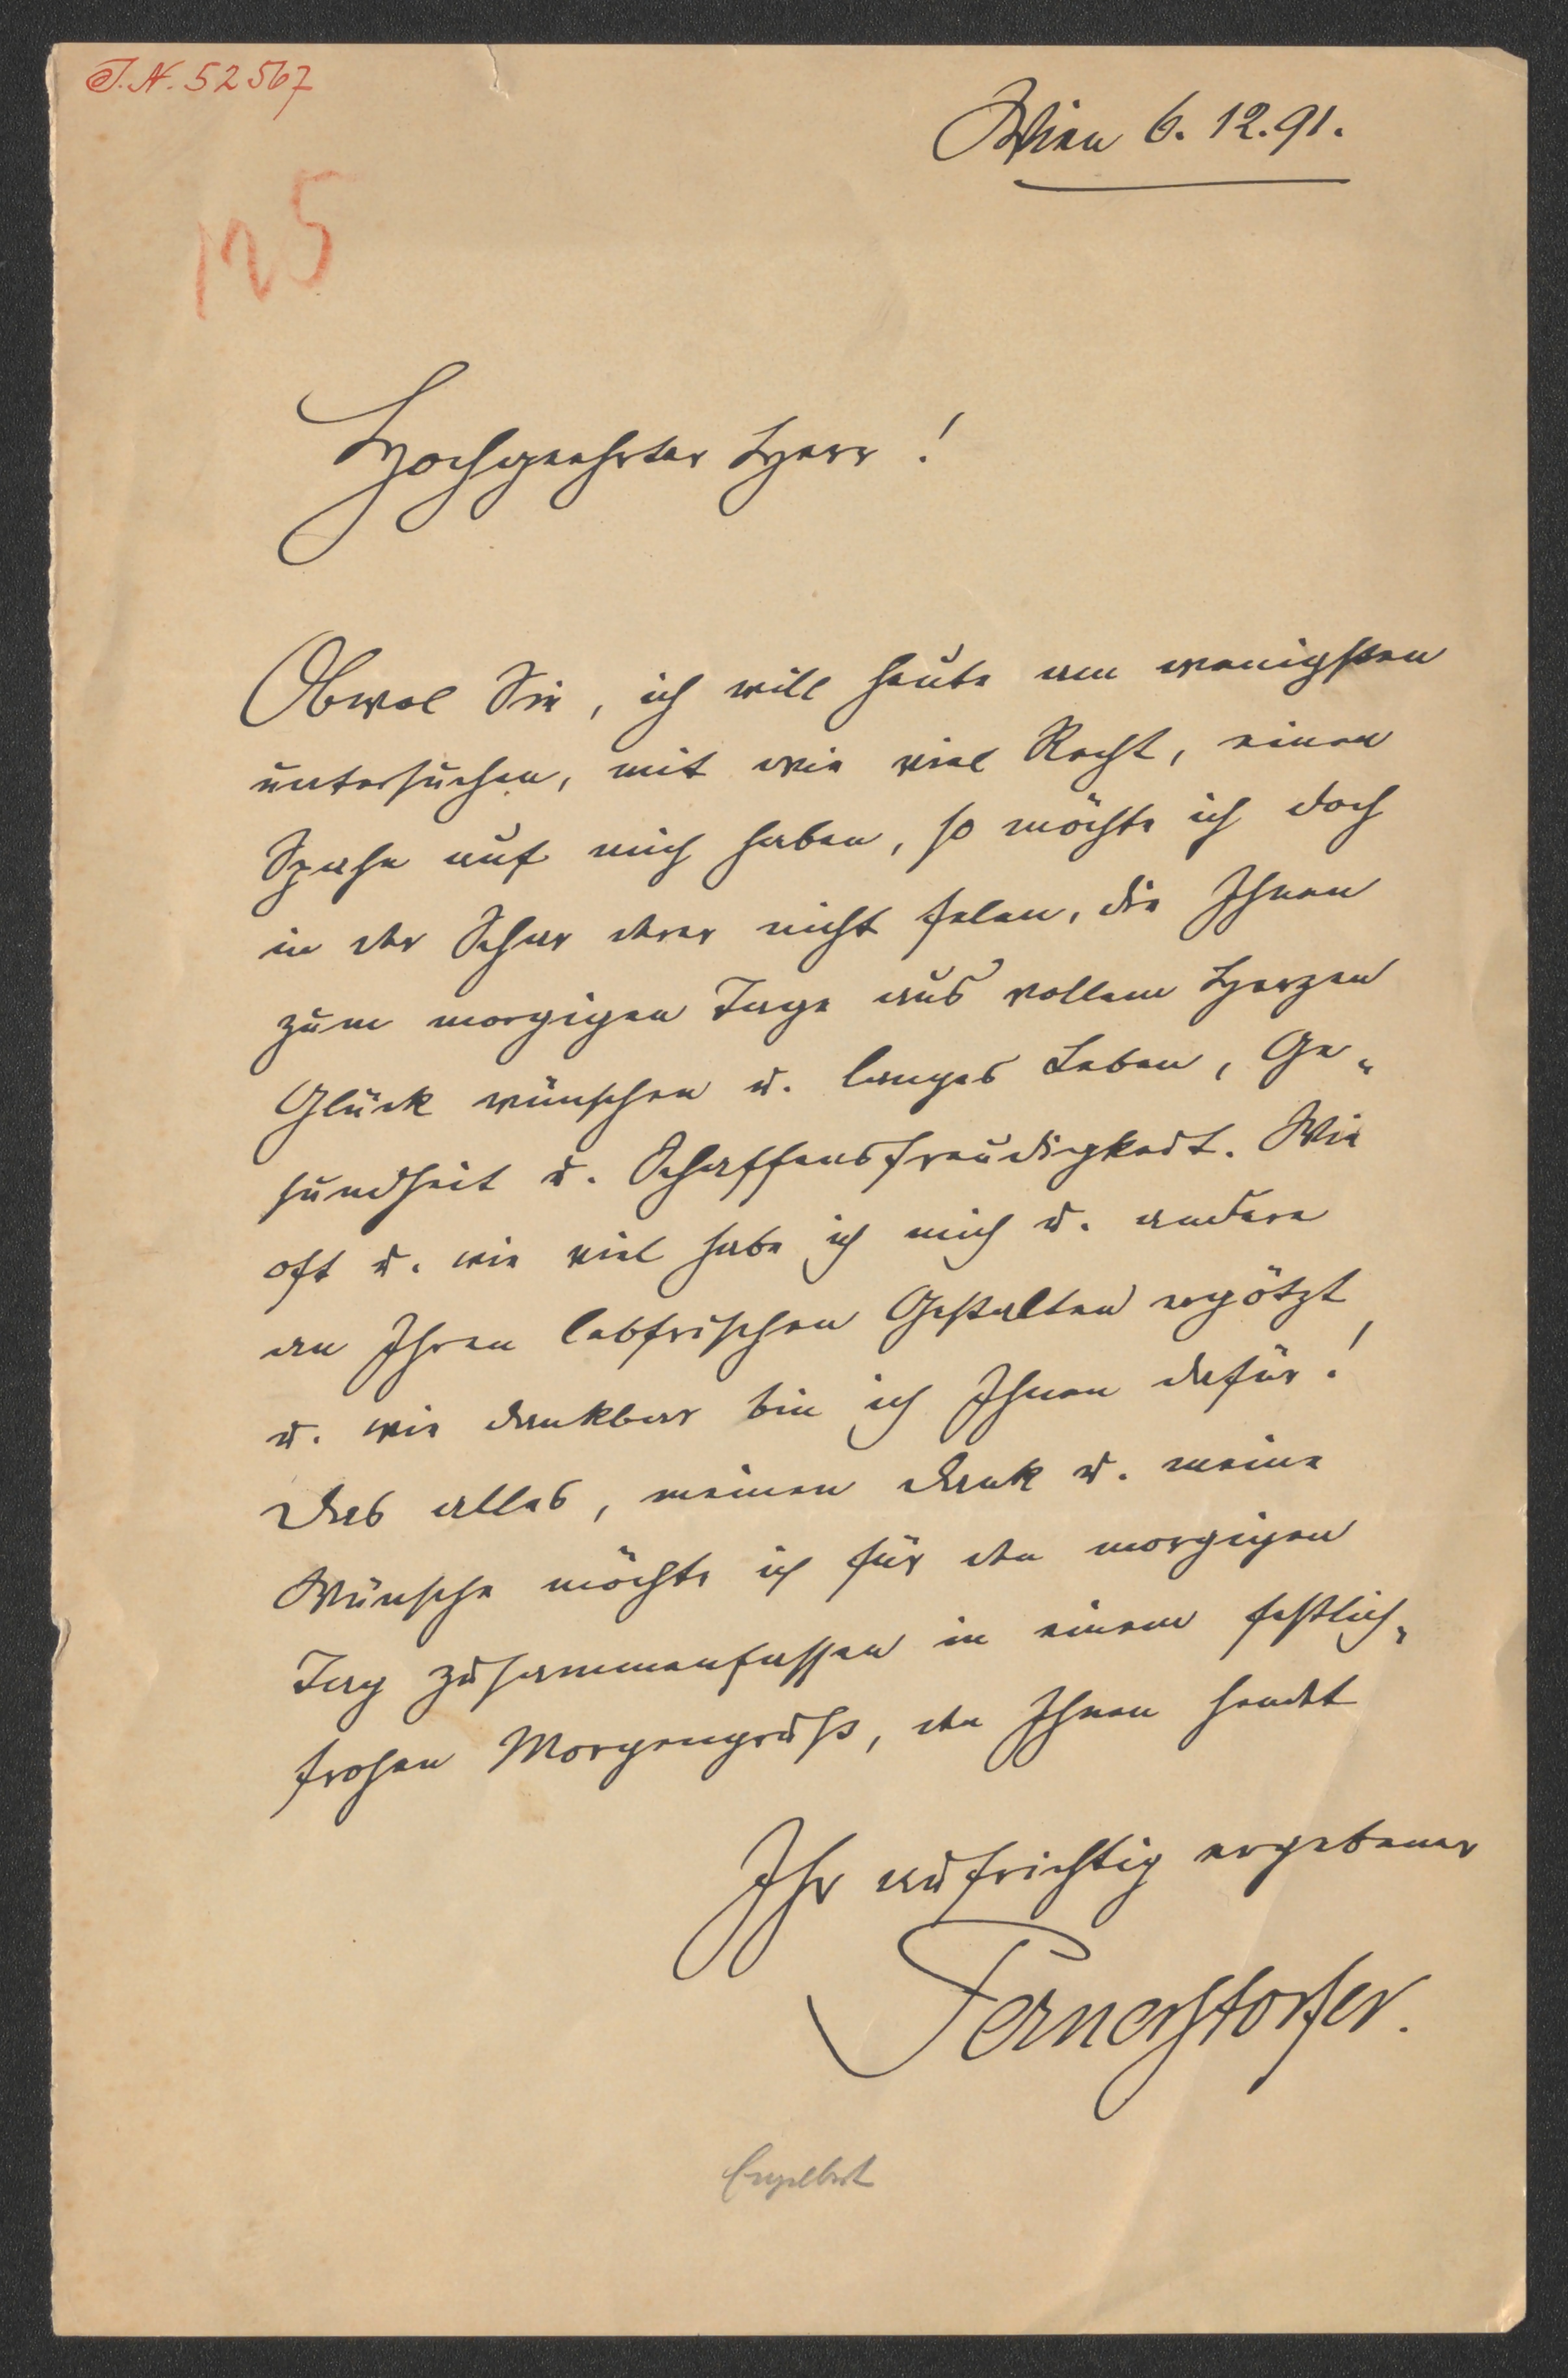 J.N. 52567
Wien 6. 12. 91.
125
Hochgeehrter Herr!
Obwol Sie, ich will heute am wenigsten
untersuchen, mit wie viel Recht, einen
auf mich haben, so möchte ich doch
in der Schar derer nicht felen, die Ihnen
zum morgigen Tage aus vollem Herzen
Glück wünschen u. langes Leben, Ge-
sundheit u. Schaffensfreudigkeit. Wie
oft u. wie viel habe ich mich u. andere
an Ihren lebfrischen Gestalten ergötzt
u. wie dankbar bin ich Ihnen dafür!
Das alles, meinen Dank u. meine
Wünsche möchte ich für den morgigen
Tag zusammenfassen in einem festlich-
frohen Morgengruß, den Ihnen sendet
Ihr aufrichtig ergebener
Pernerstorfer.
Engelbert